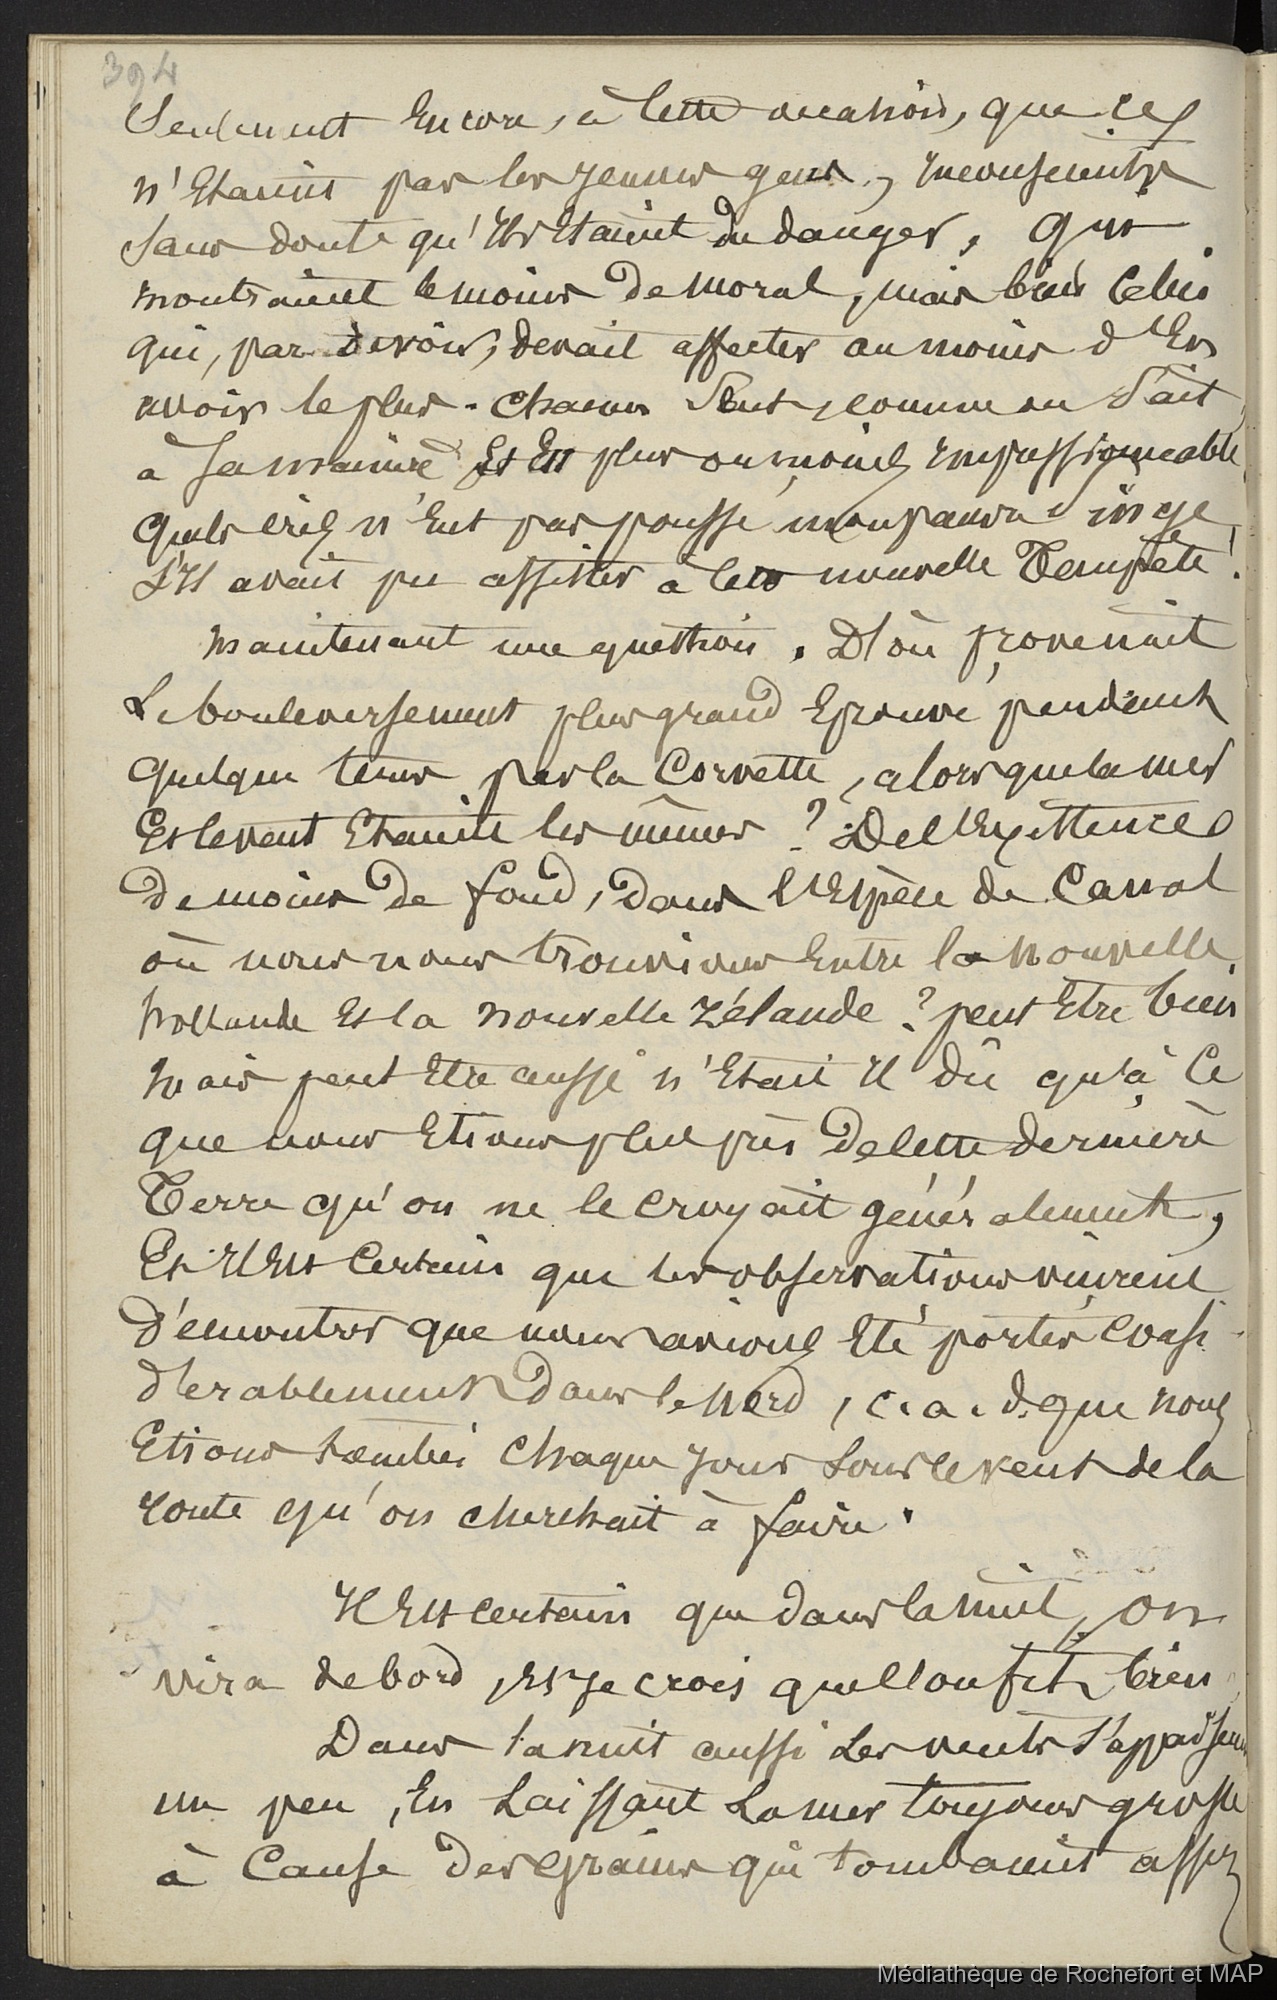 394
Seulement Encore, à Cette occasion, que Ces
n'Etaient pas les jeunes gens, Inconscients
Sans doute qu'Ils Etaient du danger, qui
montraient le moins De moral, mais bien Celui
qui, par devoir, devait affecter au moins d'En
avoir le plus. Chacun Sent, comme on Sait,
à Sa manière Et Est plus ou moins Impressionnable
Quels cris n'Eut pas poussé mon pauvre singe
S'Il avait pu assister à cette nouvelle Tempête!
Maintenant une question. D'où provenait
Le bouleversement plus grand Eprouvé pendant
quelque tems par la Corvette, alors que la mer
Et le vent Etaient les mêmes? De l'Existence
De moins De fond, Dans l'Espèce de Canal
où nous nous trouvions Entre la Nouvelle
hollande Et la nouvelle Zélande? peut Etre bien
Mais peut Etre aussi n'Etait Il dû qu'à Ce
que nous Etions plus près De cette dernière
Terre qu'on ne le croyait généralement,
Et Il Est Certain que les observations vinrent
Démontrer que nous avions Eté portés Consi-
dérablement Dans le Nord, c.a.d. que nous
Etions tombés Chaque jour Sous le vent de la
route qu'on cherchait à faire.
Il Est certain que dans la nuit, on
vira de bord, Et je crois que l'on fit bien
Dans la nuit aussi Les vents S'appaisèrent
un peu, En Laissant La mer toujours grosse
à Cause des grains qui tombaient assez
Médiathèque de Rochefort et MAP